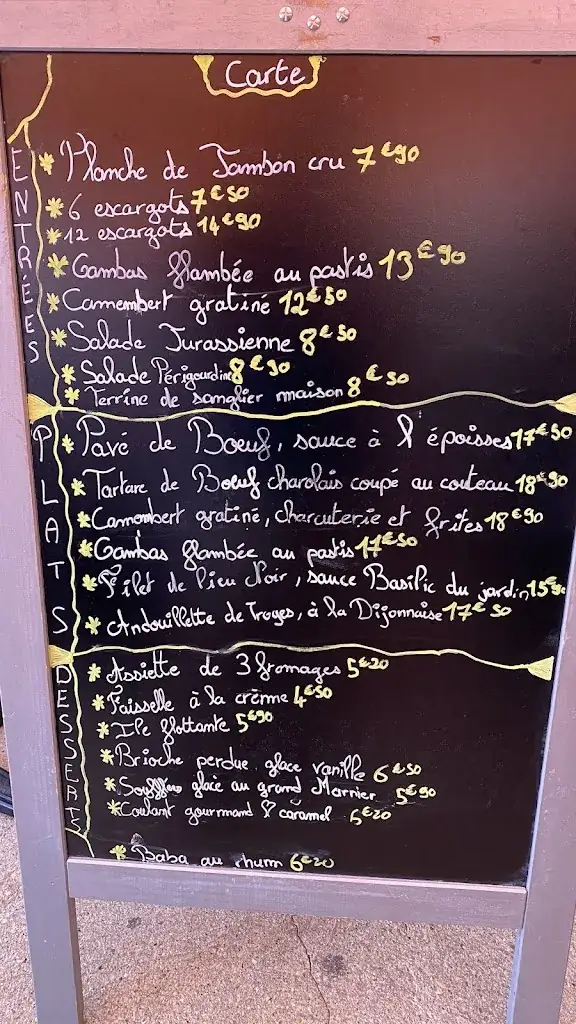 Carte
ENTRÉES
* Planche de Jambon cru 7€90
* 6 escargots 7€50
* 12 escargots 14€90
* Gambas flambée au pastis 13€90
* Camembert gratiné 12€50
* Salade Jurassienne 8€50
* Salade Périgourdine 8€90
* Terrine de sanglier maison 8€50
PLATS
* Pavé de Boeuf, sauce à l époisses 17€50
* Tartare de Boeuf charolais coupé au couteau 18€90
* Camembert gratiné, charcuterie et frites 18€90
* Gambas flambée au pastis 17€50
* Filet de lieu Noir, sauce Basilic du jardin 15€90
* Andouillette de Troyes, à la Dijonnaise 17€50
DESSERTS
* Assiette de 3 fromages 5€20
* Faisselle à la crème 4€50
* Ile flottante 5€90
* Brioche perdue, glace vanille 6€50
* glace au grand Marnier 5€90
* Coulant gourmand ♡ caramel 5€20
* Baba au rhum 6€20